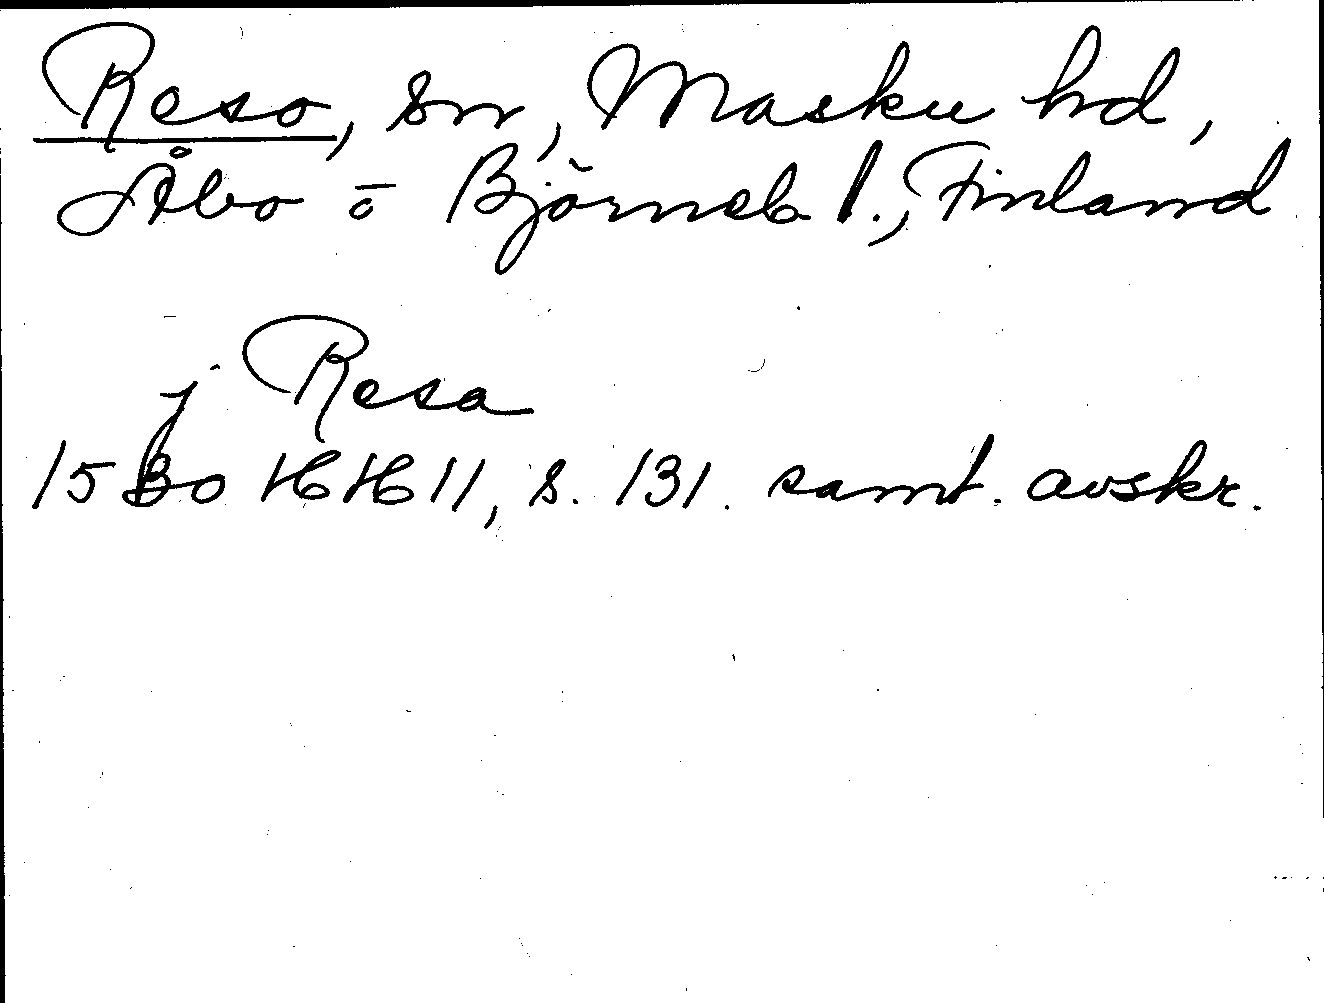 Reso, sn, Masku hd,
Åbo o Björneb l., Finland
j Resa
1530 HH 11, s. 131. samt. avskr.